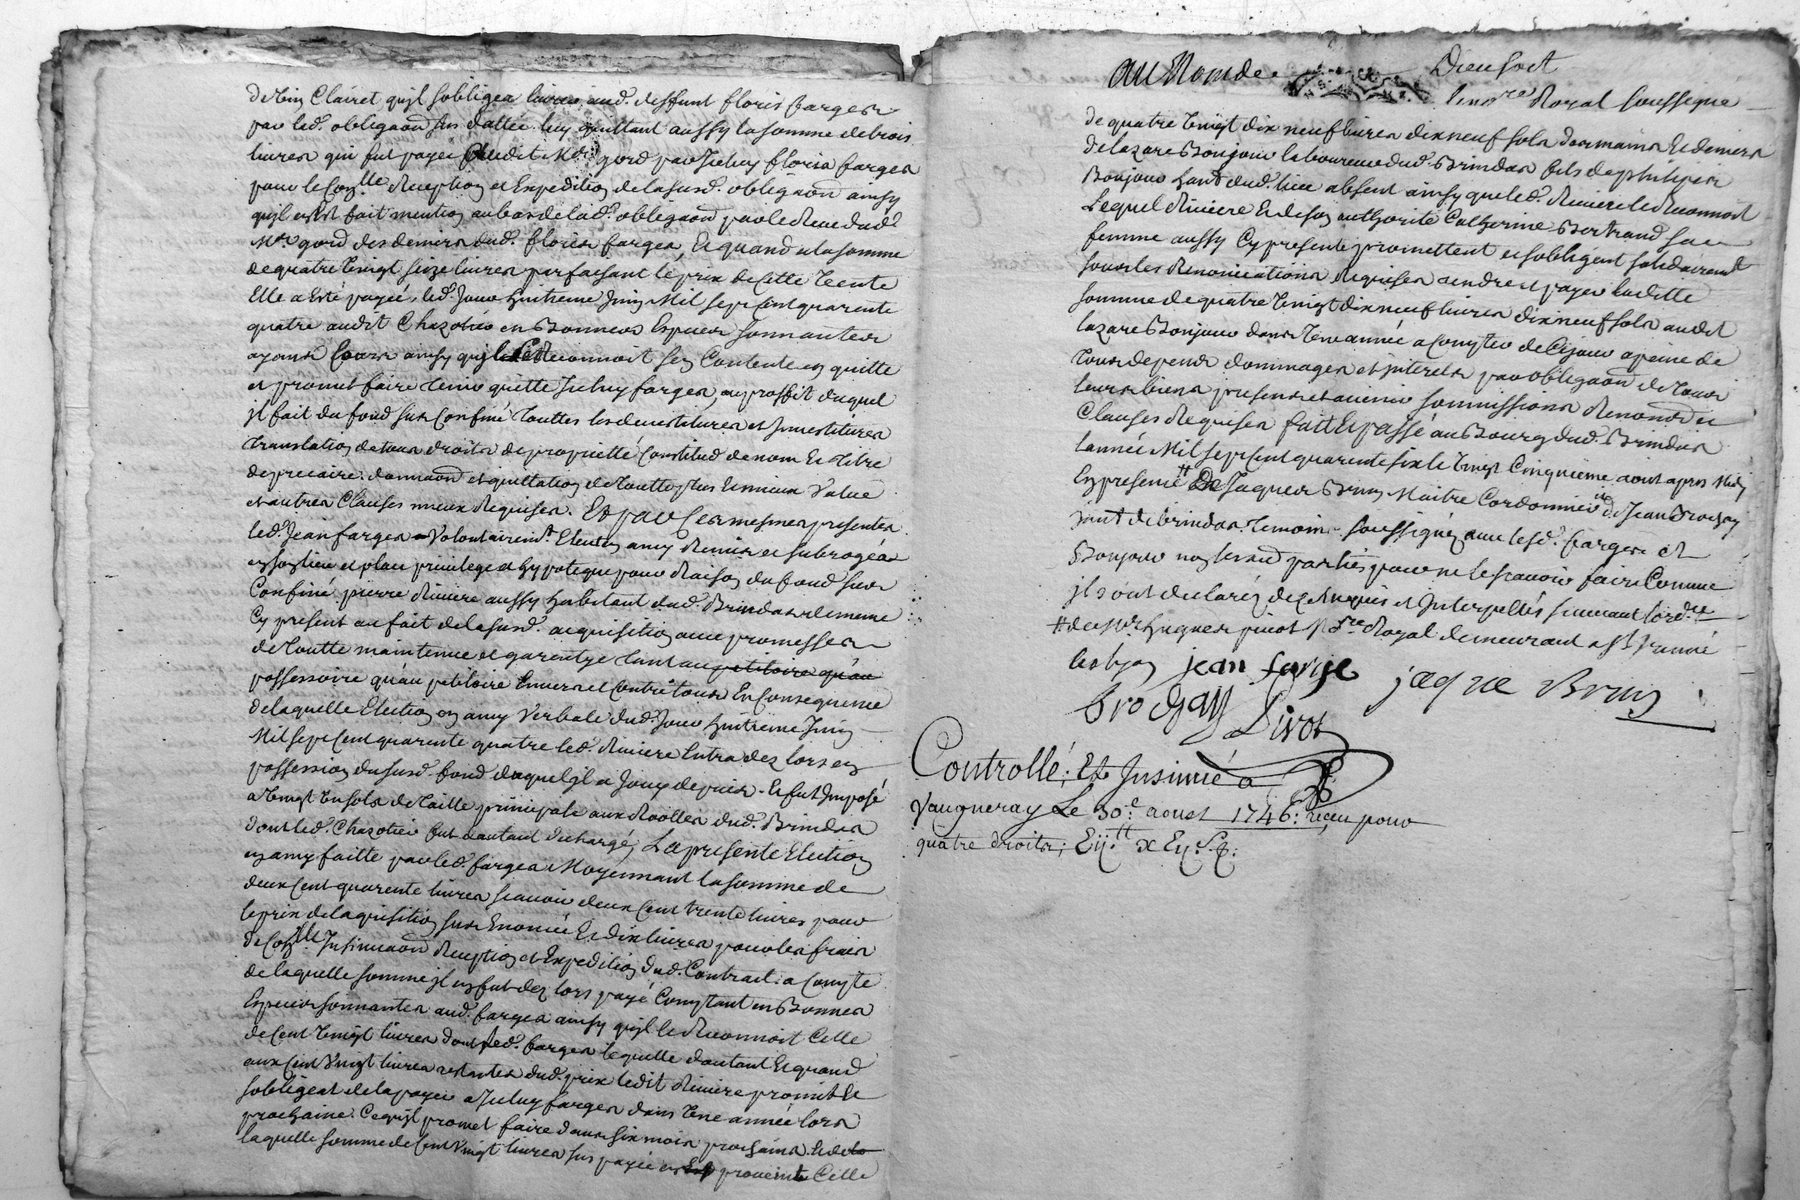 de Vin Clairet qu'jl sobligea livrer aud. deffunt floris farges
par led. obligaon sus dattée luy quittant aussy la somme de trois
livres qui fut payée audit Me gord par Iceluy floris farges
pour le Conlle Reception et Expedition de la susd. obligaon ainsy
qu'jl en est fait mention au bas de lad. obligaon par le Receu dud.
Me gord des deniers dud. floris farges, Et quand a la somme
de quatre Vingt seize livres parfaisant le prix de Cette Vente
Elle a Esté payée led. Jour huitieme Juin Mil sept Cent quarente
quatre audit Chazottier en Bonnes Especes sonnantes
ayant Cours ainsy qu'jl le Reconnoit s'en Contente en quitte
et promet faire tenir quitte Iceluy farges, au proffit duquel
jl fait du fond sus Confiné touttes les devestitures et Jnvestitures
translation de tous droits de proprietté Constitud de nom Et titre
de precaire donnaon et quittation de toutte plus Et mieux Value
et autres Clauses mieux Requises. Et par Ces mesmes presentes
led. Jean farges Volontairemt. Elu en amy Remis et subrogé
en son lieu et place privilege et hypoteque pour Raison du fond sus
Confiné pierre Riviere aussy habitant dud. Brindas
Cy present au fait de la susd. acquisition avec promesses
de toutte maintenue et garentye tant au petitoire qu'au
possessoire qu'au petitoire Envers et Contre tous En Consequence
de laquelle Election en amy Verbale dud. Jour huitieme Juin
Mil sept Cent quarente quatre led. Riviere Entra dez lors en
possession du susd. fond duquel jl a Jouy depuis Et fut Jmposé
a Vingt Un sols de taille principale aux Roolles dud. Brindas
dont led. Chazotier fut d'autant dechargé, La presente Election
en amy faitte par led. farges Moyennant la somme de
deux Cent quarente livres scavoir deux Cent trente livres pour
le prix de laquisition sus Enoncée Et dix livres pour les frais
de Conlle Jnsinuaon Reception et Expedition dud. Contract a Compte
de laquelle somme jl en fut dez lors payé Comptant en Bonnes
Especes sonnantes aud. farges ainsy qu'jl le Reconnoit Celle
de Cent Vingt livres dont led. farges le quitte d'autant Et quand
aux Cent Vingt livres restantes dud. prix ledit Riviere promet Et
s'obligeat de la payer a Iceluy farges dans Une année lors
prochaine. Ce qu'jl promet faire dans six mois prochains
laquelle somme de Cent Vingt livres sus payée en provient Celle
au Nom de Dieu soit
le notre Royal soussigné
de quatre Vingt dix neuf livres dix neuf sols des mains Et deniers
de lazare Bonjour laboureur dud. Brindas fils de philipes
Bonjour habt dud. lieu absent ainsy que led. Riviere le Reconnoit
Lequel Riviere Et de son authorité Catherine Bertrand sa
femme aussy Cy presente promettent et sobligent solidairemt
sous les Renonciations Requises rendre et payer ladette
somme de quatre Vingt dix neuf livres dix neuf sols audit
lazare Bonjour dans Une année a Compter de Cejour a peine de
tous depens dommages et jnterets par obligaon de tous
leurs biens presens et avenir sommissions Renonons et
Clauses Requises fait Et passé au Bourg dud. Brindas
l'année Mil sept Cent quarente six le Vingt Cinquieme aout apres Midy
En presence # De Jacques Brun Maitre Cordonnier Et de Jean Brochay
dud. Brindas temoins soussignéz avec lesd. farges et
Bonjour non lesd. parties pour ne le scavoir faire Comme
jls ont declaréz de Ce Enquis et Jnterpellés suivant l'ordce
# de Me hugues pivot Nore Royal demeurant a St
les lyon jean farge jaque Brun
brochay Pivot
Controllé; Et Jnsinué a
Vaugneray Le 30e aoust 1746: receu pour
quatre droits;